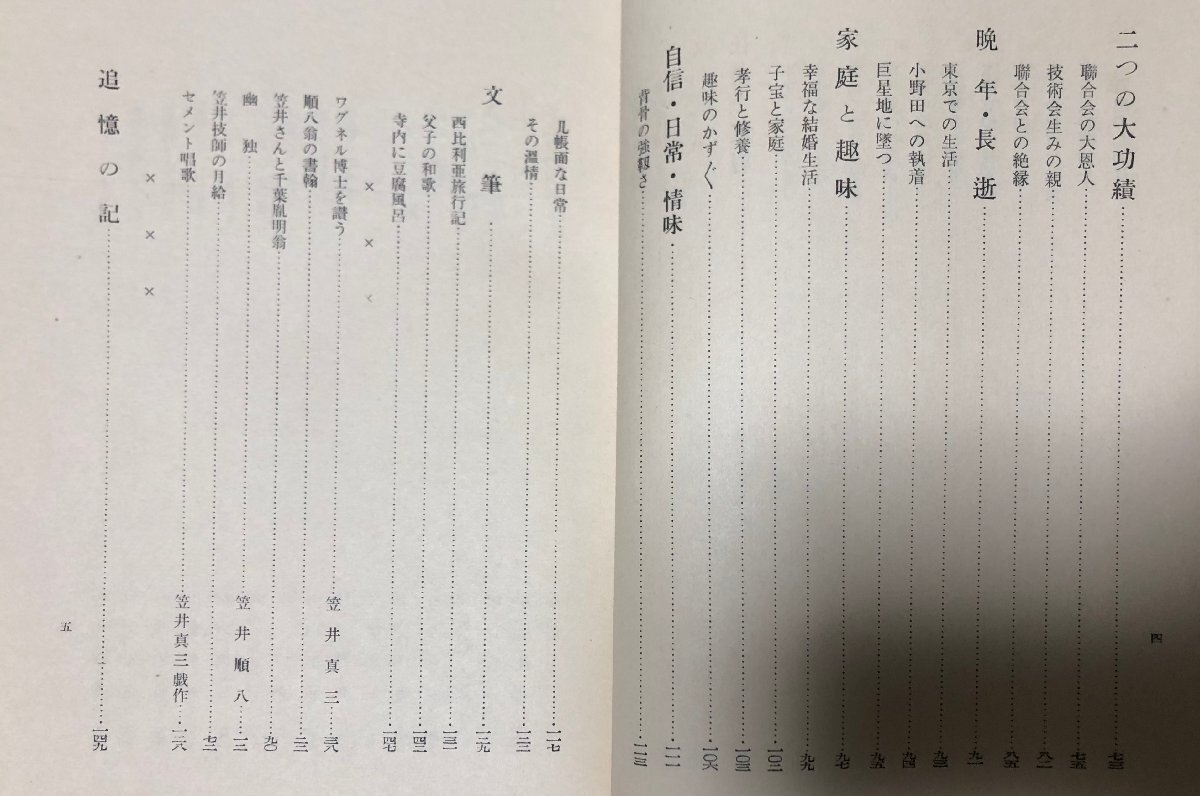 二つの大功績……七三
聯合会の大恩人……七五
技術会生みの親……八二
聯合会との絶縁……八五
晩年・長逝……九一
東京での生活……九三
小野田への執着……九四
巨星地に墜つ……九五
家庭と趣味……九七
幸福な結婚生活……九九
子宝と家庭……一〇二
孝行と修養……一〇三
趣味のかず〱……一〇六
自信・日常・情味……一一一
背骨の強靱さ……一一三
四
几帳面な日常……一一七
その温情……一二二
文筆……一二九
西比利亜旅行記……一三一
父子の和歌……一四二
寺内に豆腐風呂……一四七
×××
ワグネル博士を讃う……笠井真三…三八
順八翁の書翰……二三
笠井さんと千葉胤明翁……九〇
幽独……笠井順八…一二
笠井技師の月給……七二
セメント唱歌……笠井真三戯作…一二八
×××
追憶の記……一四九
五